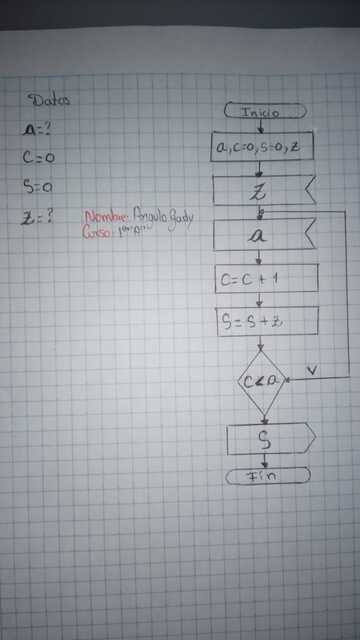 Datos
a=?
C=0
S=0
Z=?
Nombre: Angulo
Curso: 1ero "A"
Inicio
a, C=0, S=0, Z
Z
a
C=C+1
S=S+Z
C<a
V
S
Fin